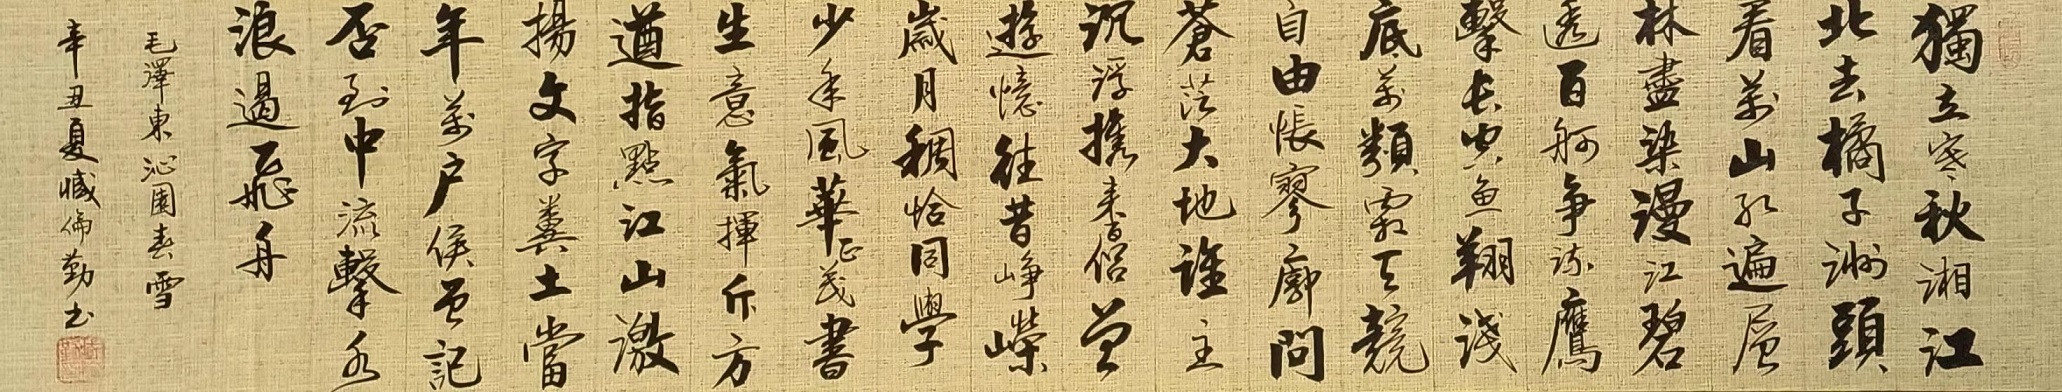 獨立寒秋湘江
北去橘子洲頭
看萬山紅遍層
林盡染漫江碧
透百舸爭流鷹
擊長空魚翔淺
底萬類霜天競
自由悵寥廓問
蒼茫大地誰主
沉浮携來百侣曾
遊憶往昔崢嶸
歲月稠恰同學
少年風華正茂書
生意氣揮斥方
遒指點江山激
揚文字糞土當
年萬戶侯曾記
否到中流擊水
浪遏飛舟
毛澤東沁園春雪
辛丑夏臧倫勤书